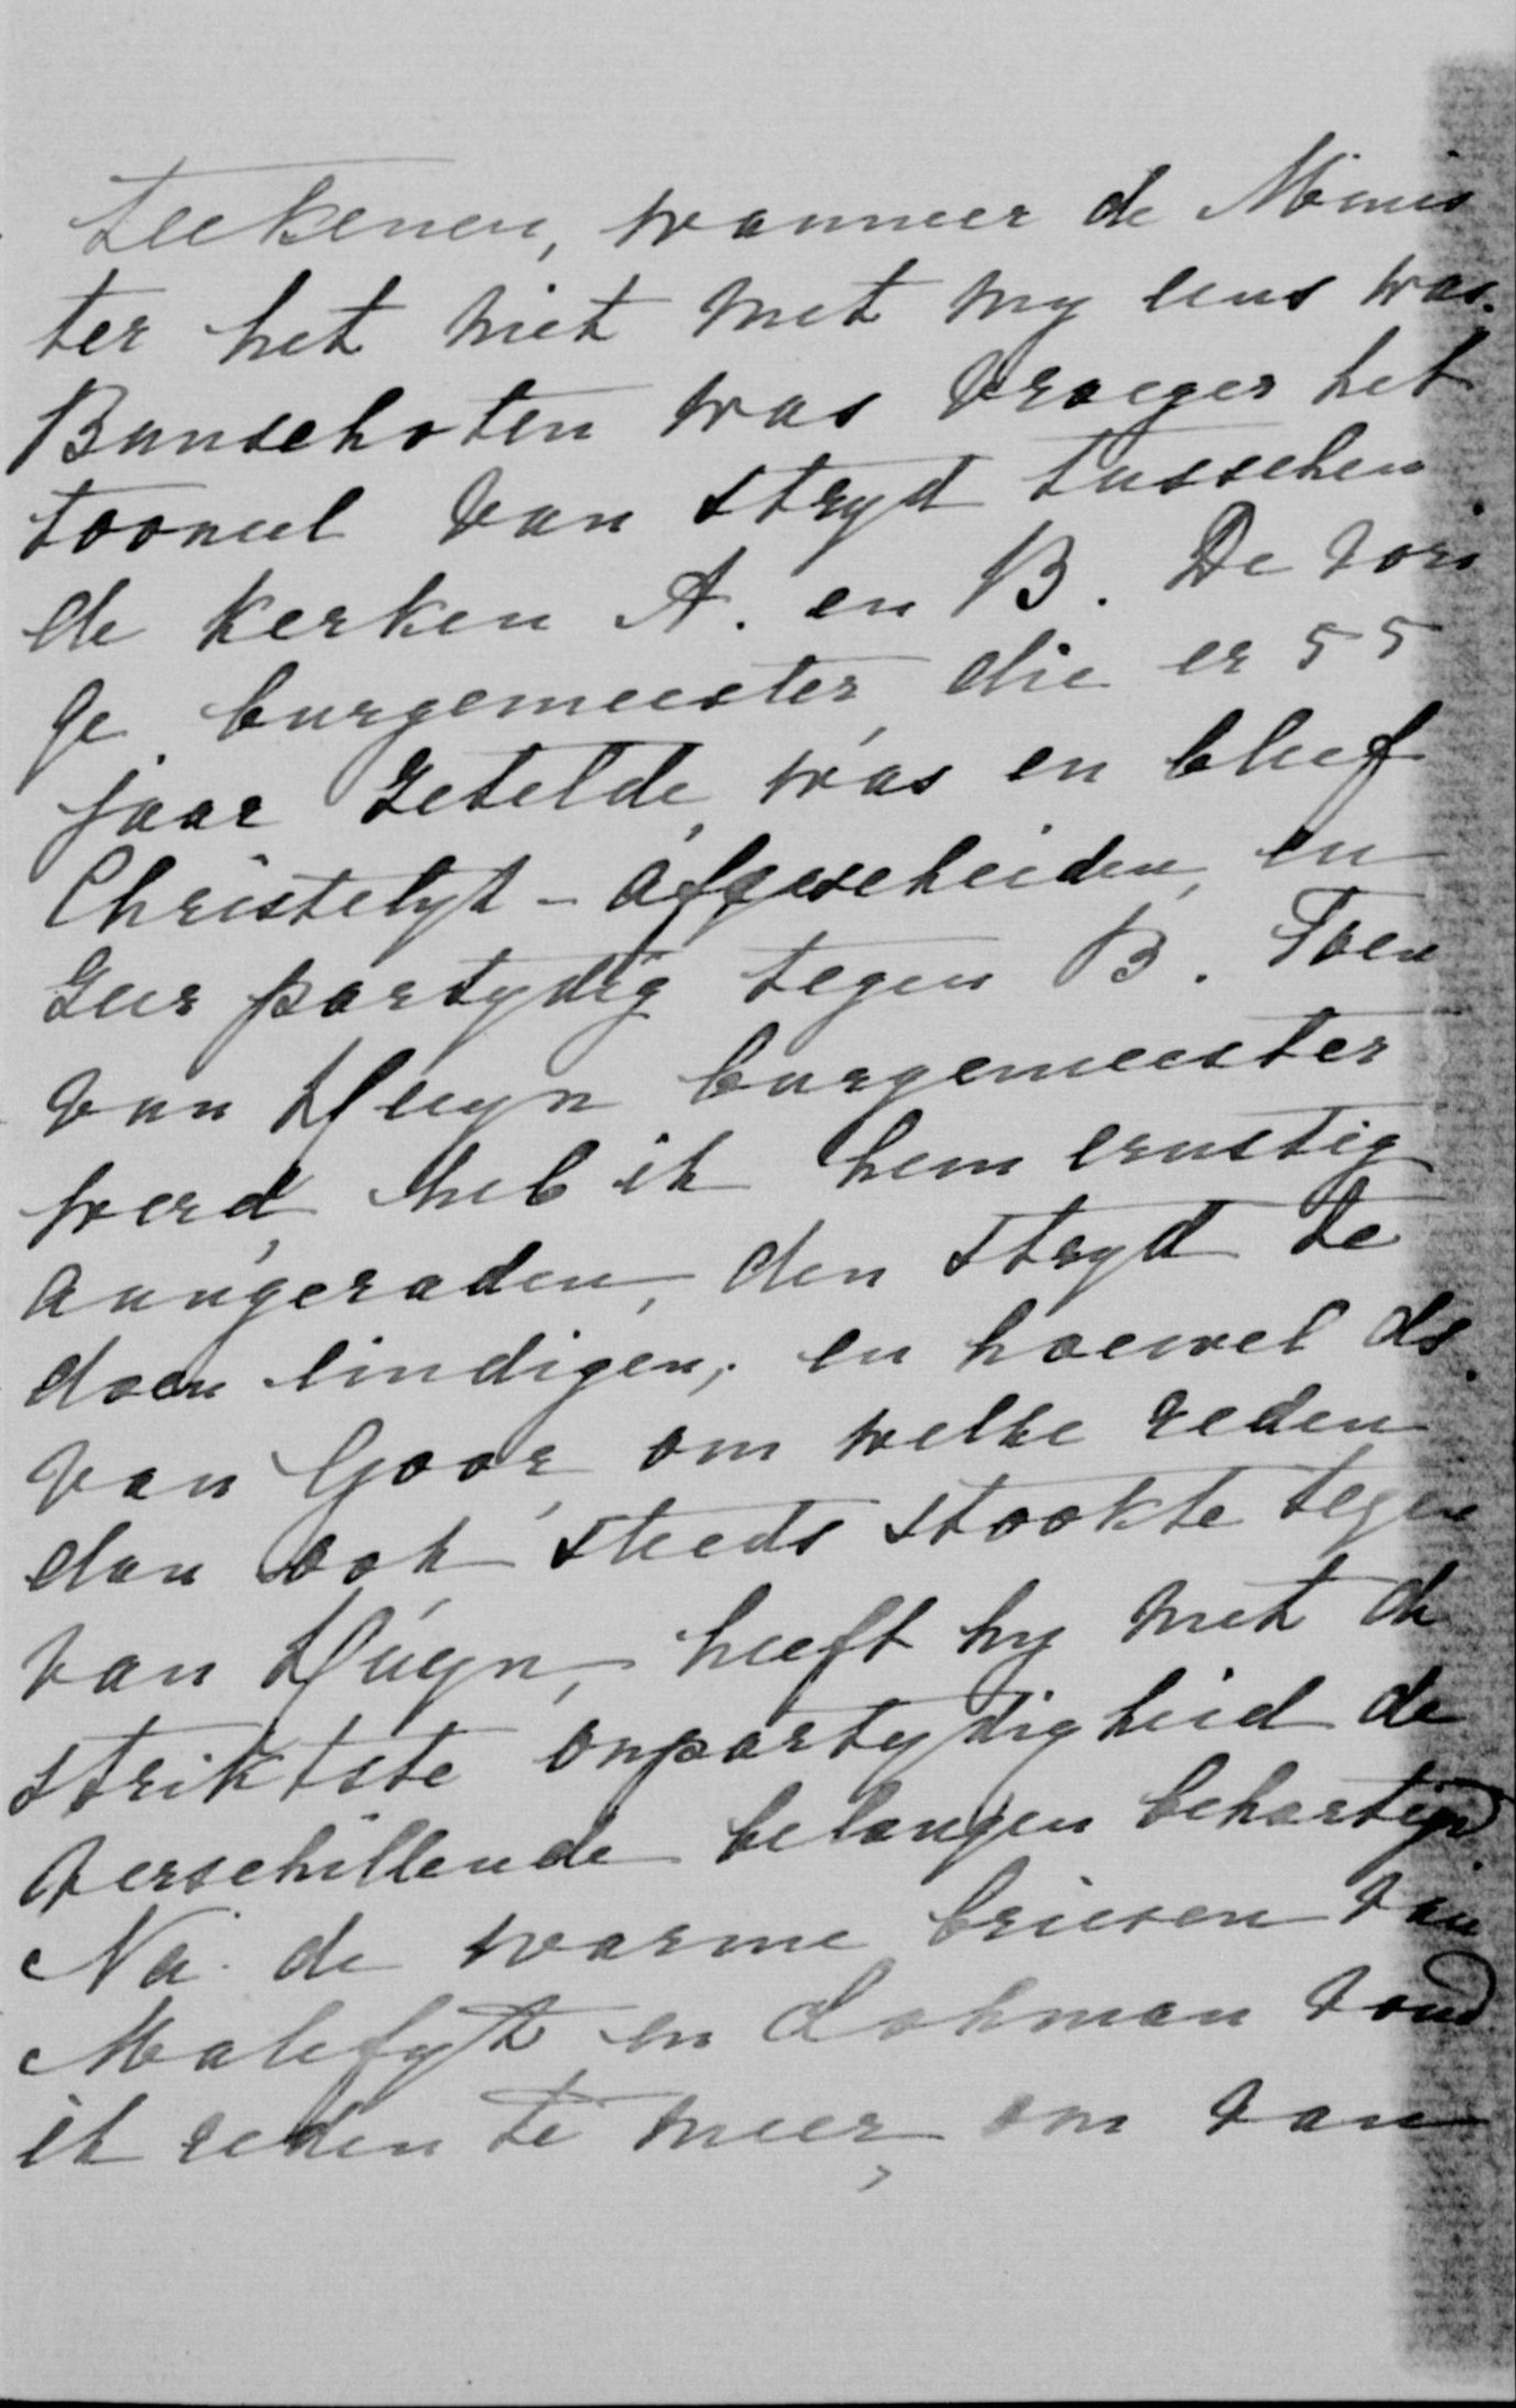 teekenen, wanneer de Minis
ter het niet met my eens was.
Bunschoten was vroeger het
tooneel van stryd tusschen
de kerken A. en B. De vori
ge burgemeester, die er 55
jaar zetelde, was en bleef
Christelyk-afgescheiden, en
zeer partydig tegen B. Toen
van Heyn burgemeester
werd, heb ik hem ernstig
aangeraden, den stryd te
doen eindigen; en hoewel ds.
van Goor, om welke reden
dan ook, steeds stookte tegen
van Heyn, heeft hy met de
striktste onpartydigheid de
verschillende belangen behartigd.
Na de warme brieven van
Malefyt en Lohman vond
ik reden te meer, om van